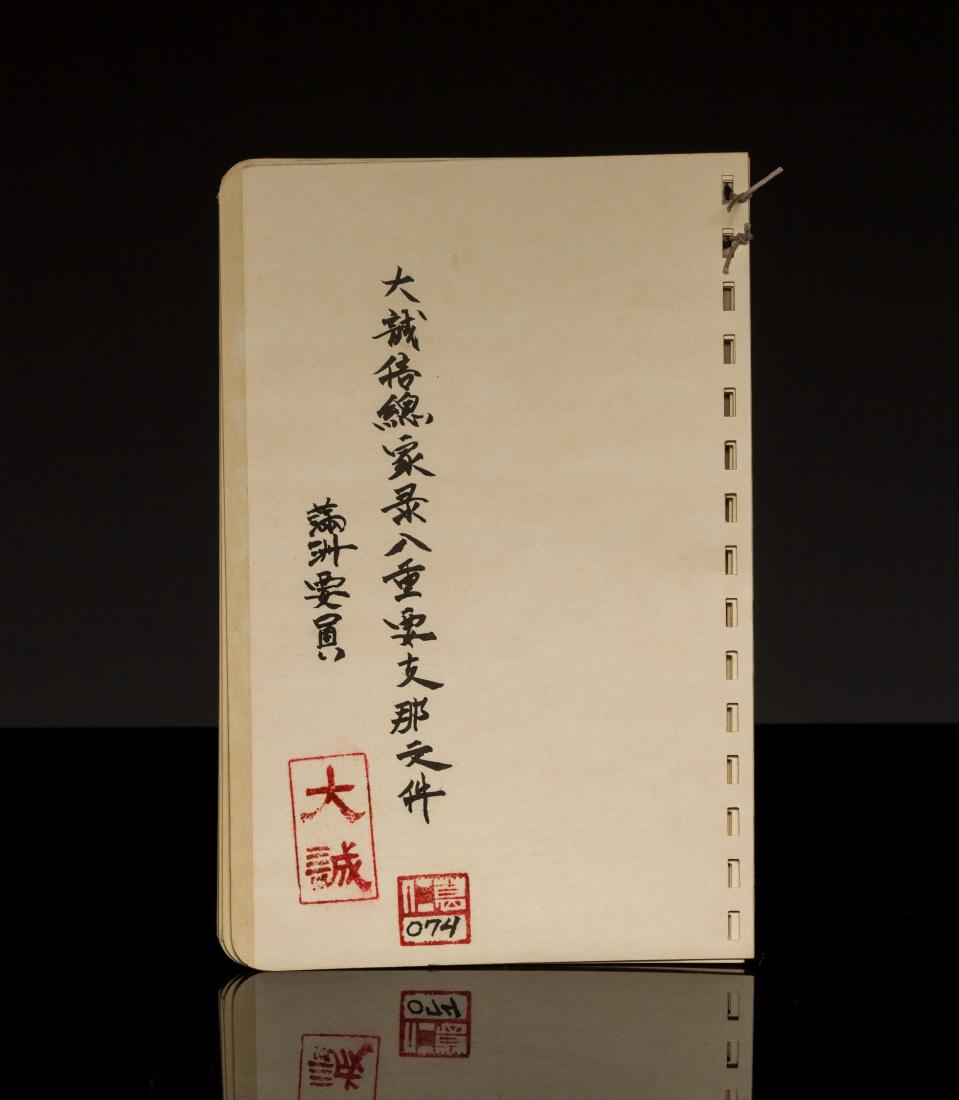 大誠信總家录八重要支那文件
滿洲要員
大誠
仁
074